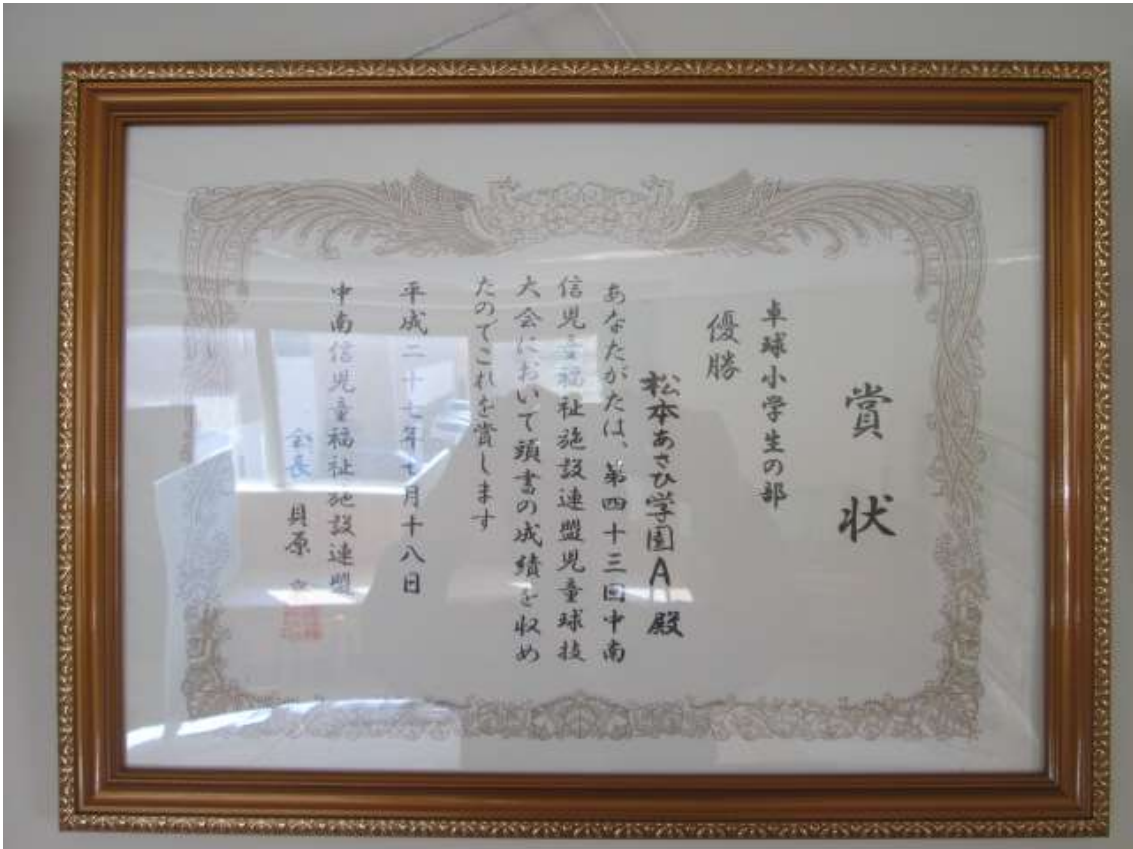 賞状
卓球小学生の部
優勝
松本あさひ学園A殿
あなたがたは、第四十三回中南
信児童福祉施設連盟児童球技
大会において頭書の成績を収め
たのでこれを賞します
平成二十七年七月十八日
中南信児童福祉施設連盟
会長 貝原